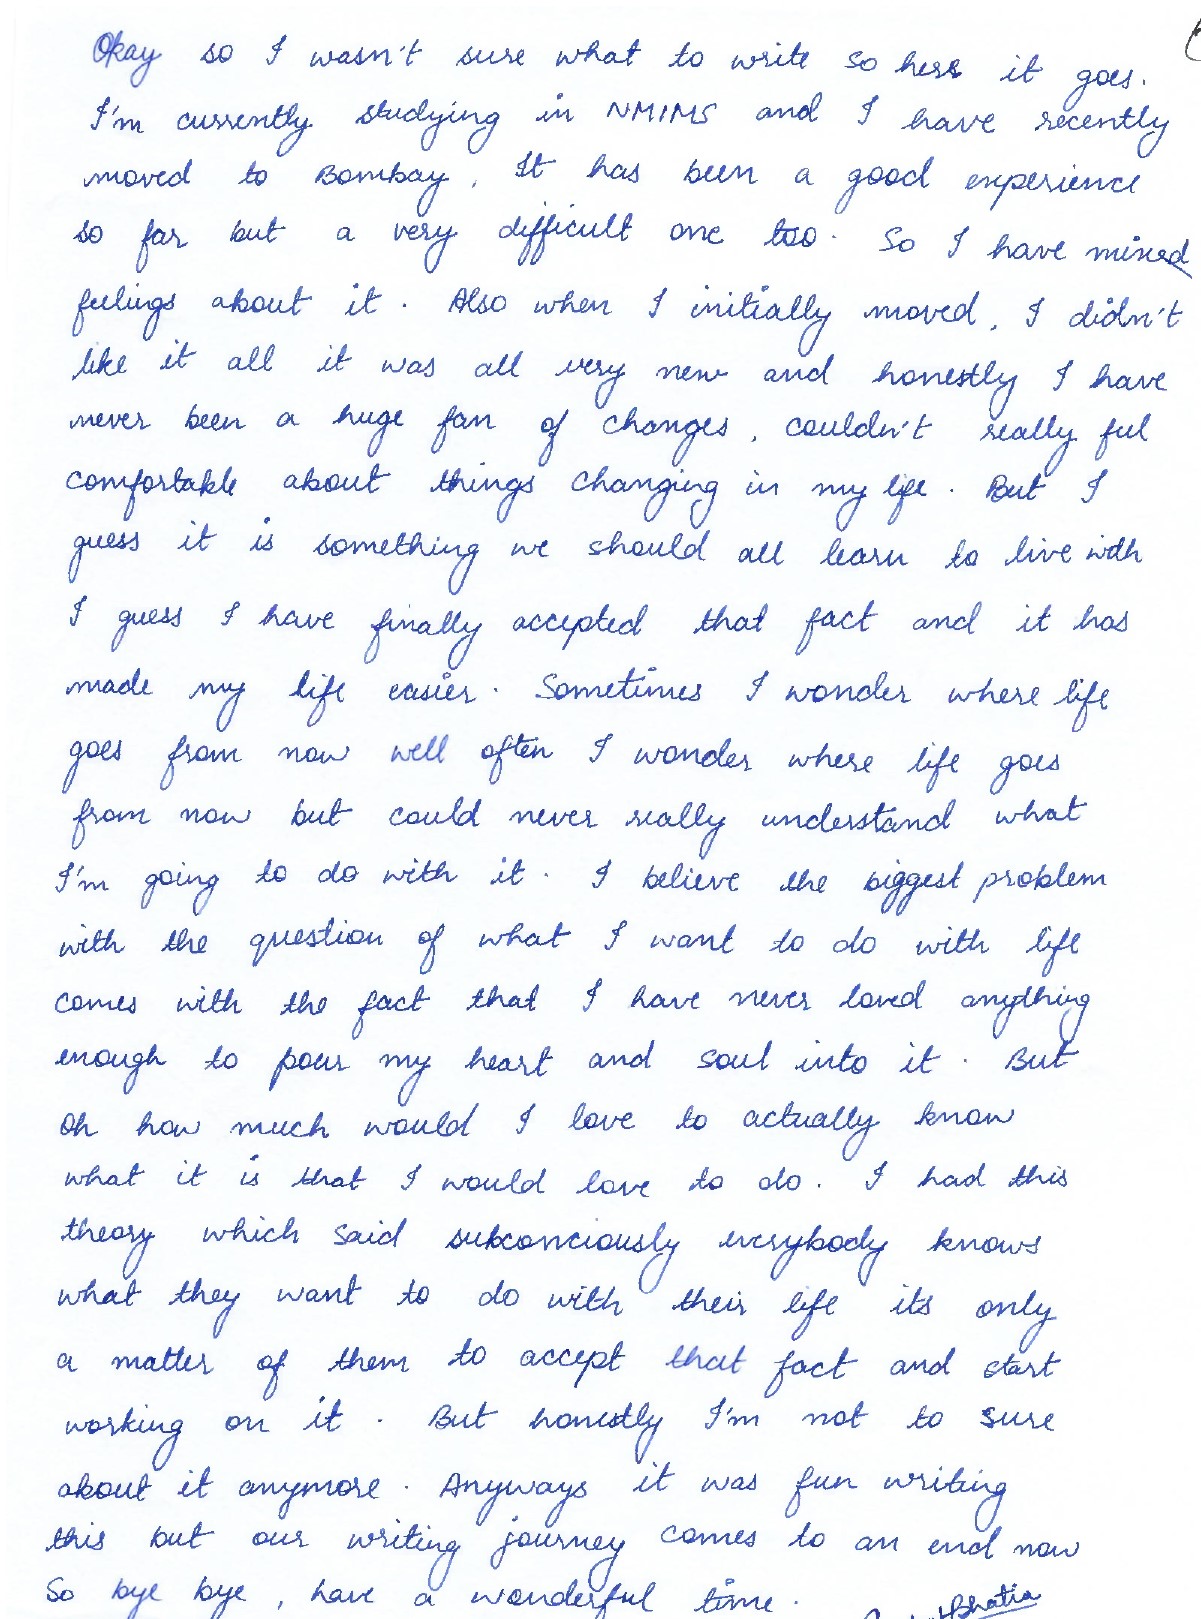 Okay so I wasn't sure what to write so here it goes.
I'm currently studying in NMIMS and I have recently
moved to Bombay. It has been a good experience
so far but a very difficult one too. So I have mixed
feelings about it. Also when I initially moved, I didn't
like it all it was all very new and honestly I have
never been a huge fan of changes, couldn't really ful
comfortable about things changing in my life. But I
guess it is something we should all learn to live with
I guess I have finally accepted that fact and it has
made my life easier. Sometimes I wonder where life
goes from now well often I wonder where life goes
from now but could never really understand what
I'm going to do with it. I believe the biggest problem
with the question of what I want to do with life
comes with the fact that I have never loved anything
enough to pour my heart and soul into it. But
Oh how much would I love to actually know
what it is that I would love to do. I had this
theory which said subconciously everybody knows
what they want to do with their life its only
a matter of them to accept that fact and start
working on it. But honestly I'm not to sure
about it anymore. Anyways it was fun writing
this but our writing journey comes to an end now
So bye bye, have a wonderful time.
Bhatia